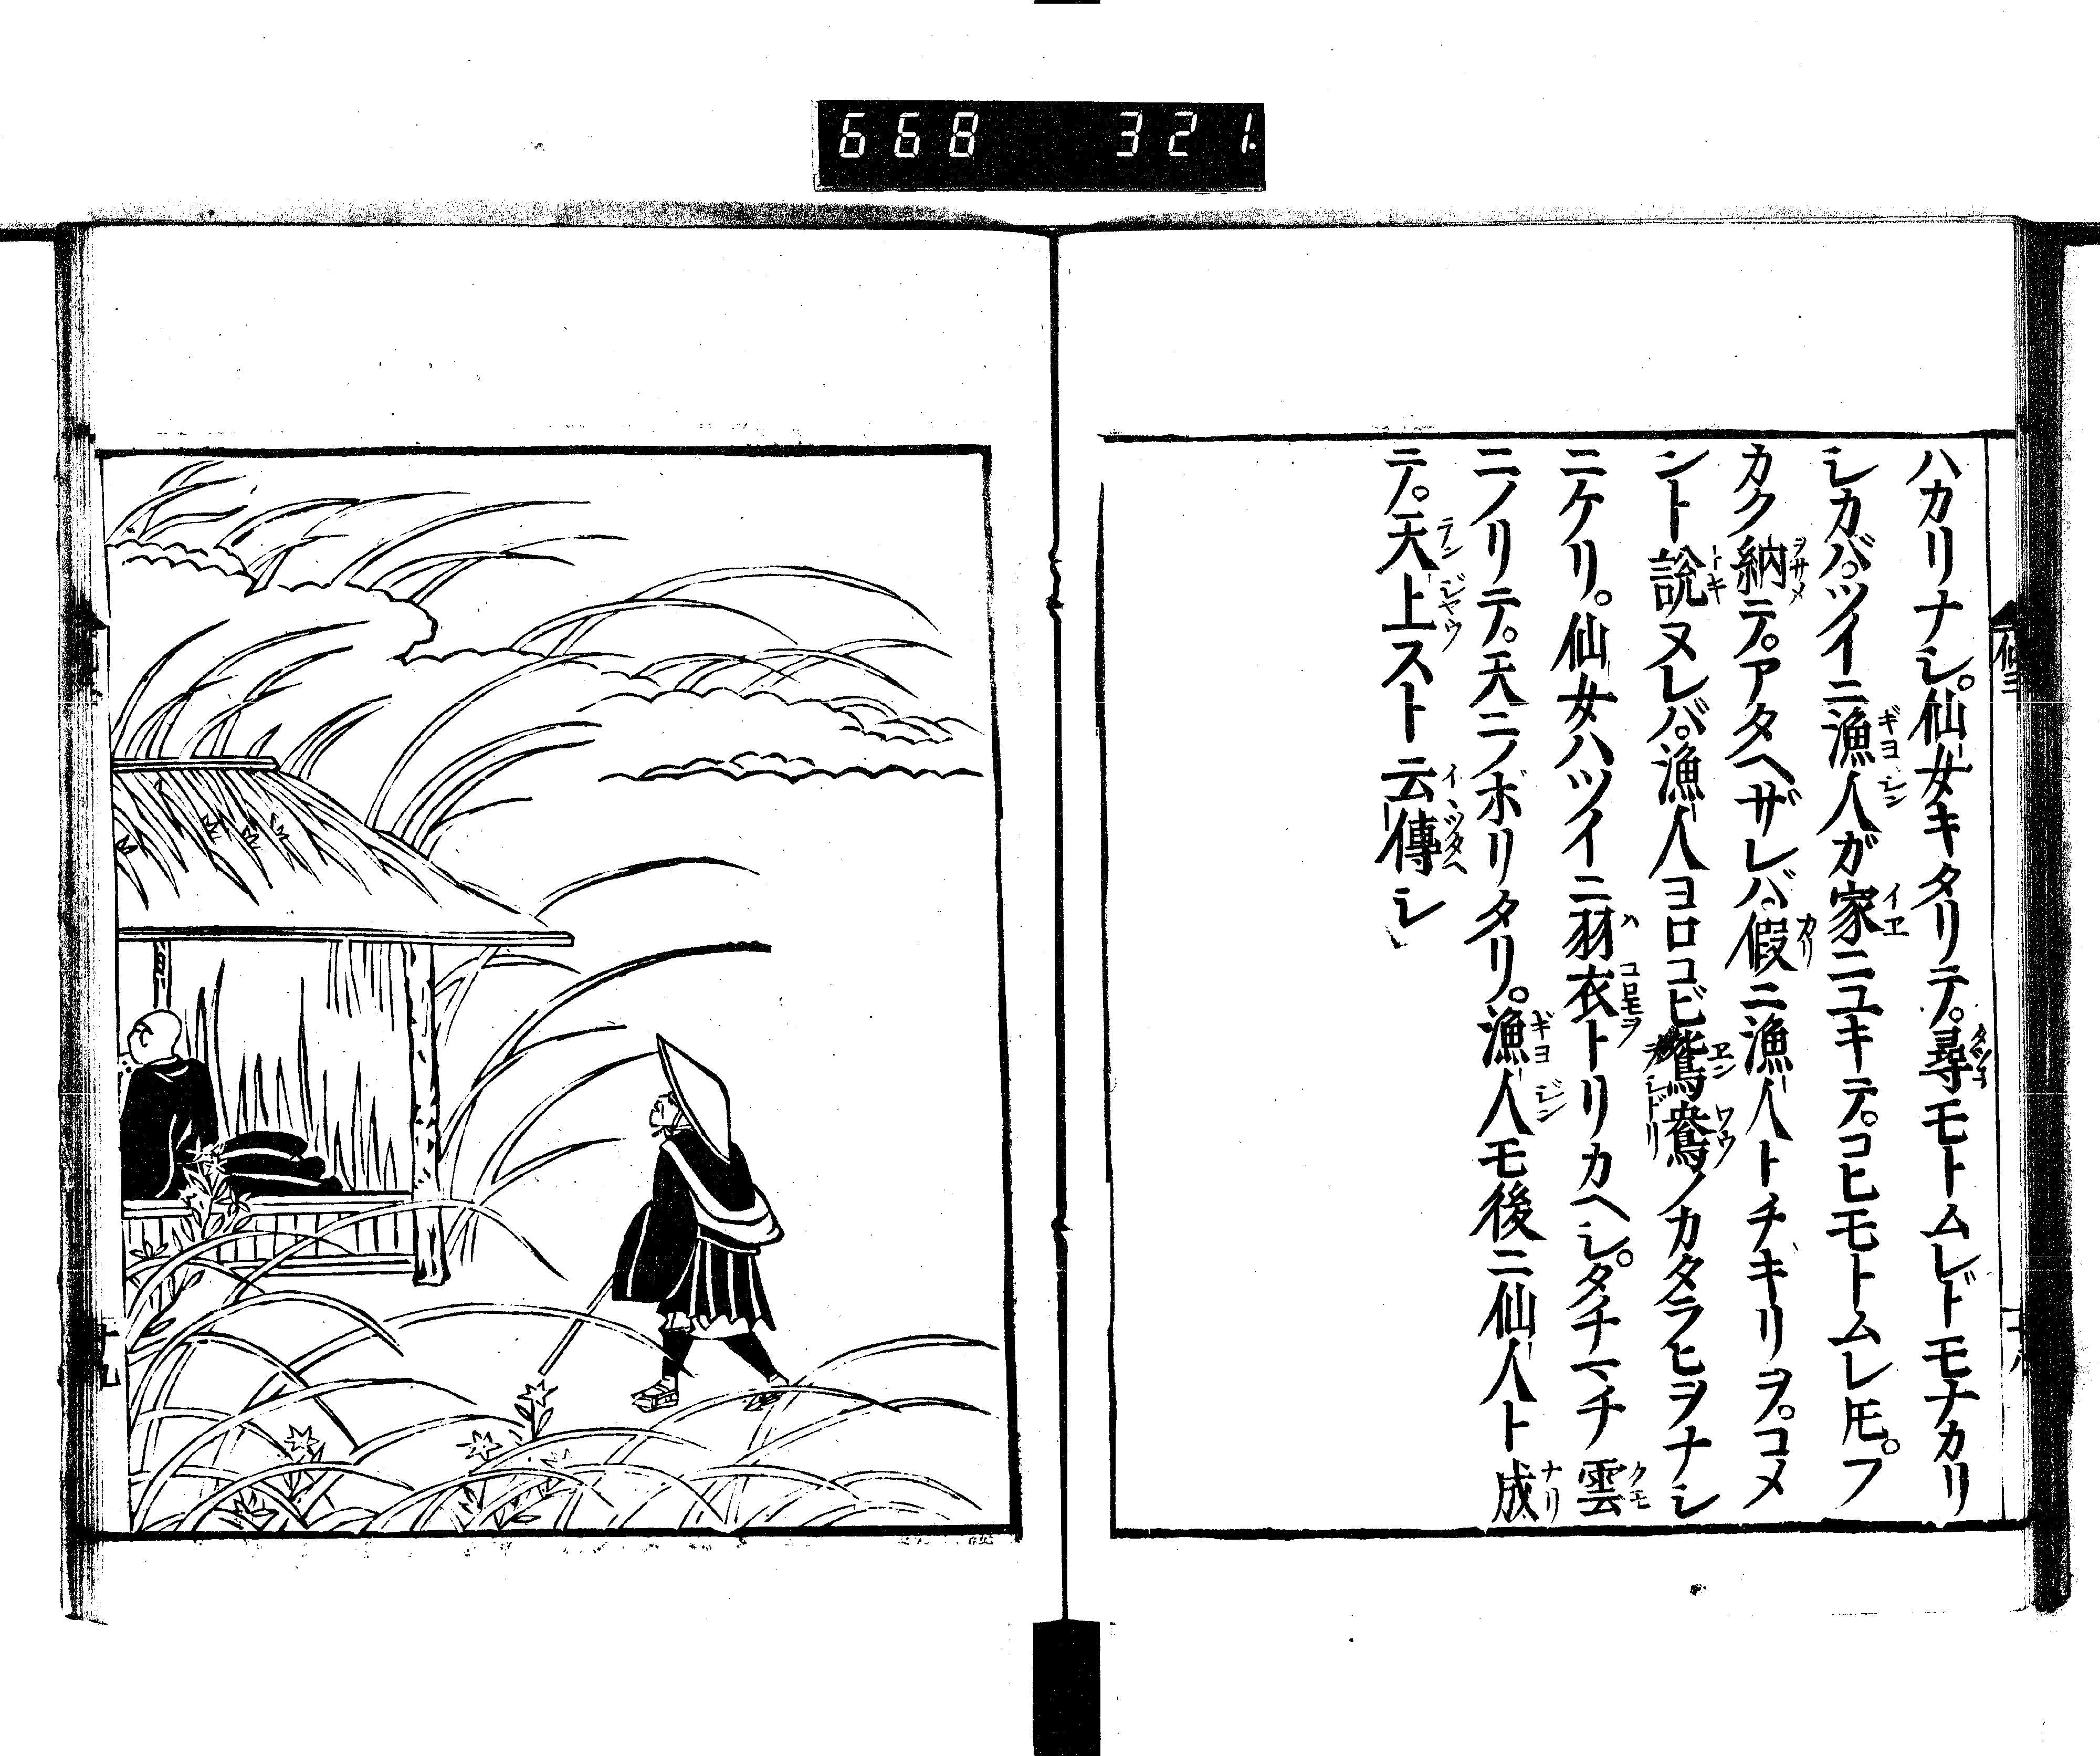 668 321
ハカリナシ。仙女キタリテ。尋モトムレドモナカリ
シカバ。ツイニ漁人ガ家ニユキテ。コヒモトムレ𪜈。フ
カク納テ。アタヘザレバ。假ニ漁人トチギリヲ。コメ
ント説ヌレバ。漁人ヨロコビ鴛鴦ノカタラヒヲナシ
ニケリ。仙女ハツイニ羽衣トリカヘシ。タチマチ雲
ニノリテ。天ニノボリタリ。漁人モ後ニ仙人ト成
テ。天上スト云傳シ